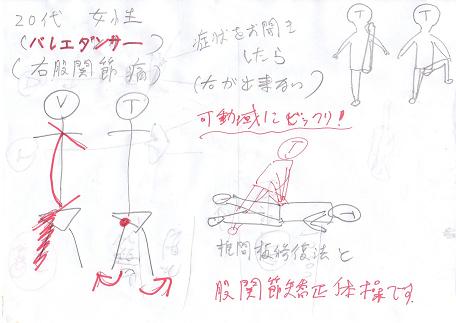 20代 女性
(バレエダンサー)
(右股関節痛)
症状をお聞き
したら
(右が出来ない)
可動域にビックリ!
V
T
T
T
T
T
椎間板修復法と
股関節矯正体操です